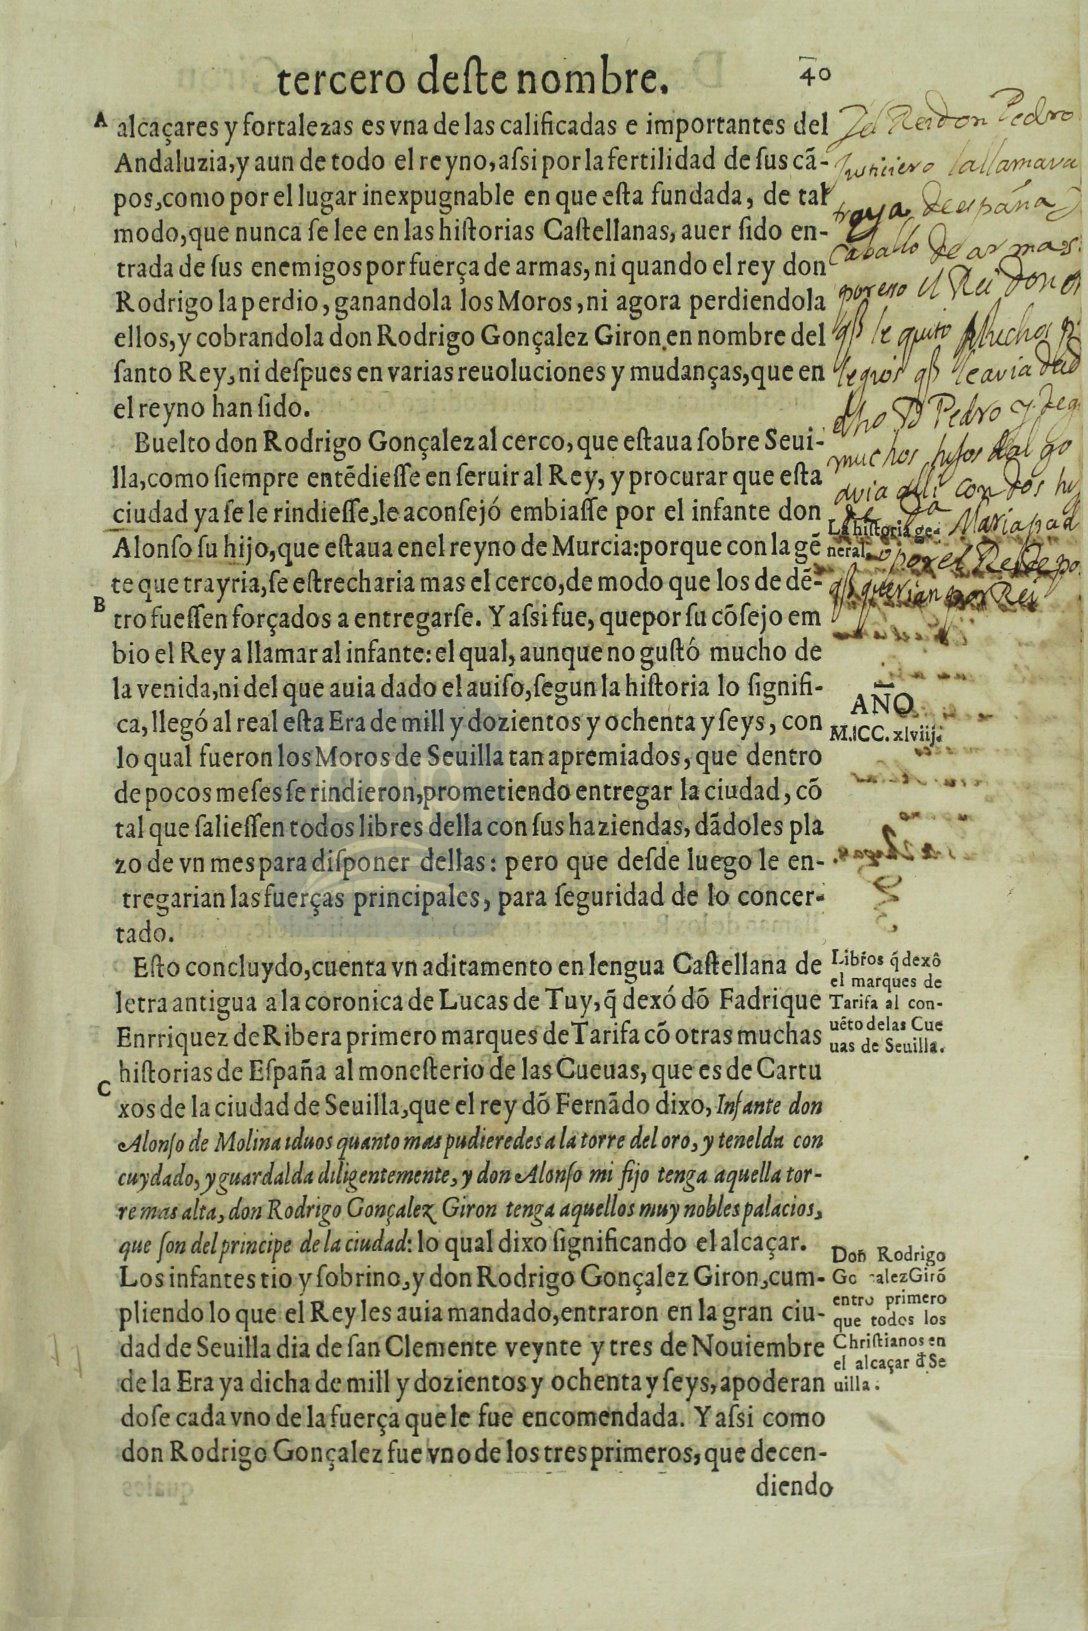 tercero deſte nombre.
40
A
alcaçares y fortalezas es vna de las calificadas e importantes del
Andaluzia, y aun de todo el reyno, aſsi por la fertilidad de ſus cã-
pos, como por el lugar inexpugnable en que eſta fundada, de tal
modo, que nunca ſe lee en las hiſtorias Caſtellanas, auer ſido en-
trada de ſus enemigos por fuerça de armas, ni quando el rey don
Rodrigo la perdio, ganandola los Moros, ni agora perdiendola
ellos, y cobrandola don Rodrigo Gonçalez Giron en nombre del
ſanto Rey, ni deſpues en varias reuoluciones y mudanças, que en
el reyno han ſido.
Buelto don Rodrigo Gonçalez al cerco, que eſtaua ſobre Seui-
lla, como ſiempre entẽdieſſe en ſeruir al Rey, y procurar que eſta
ciudad ya ſe le rindieſſe, le aconſejó embiaſſe por el infante don
Alonſo ſu hijo, que eſtaua en el reyno de Murcia: porque con la gẽ
te que trayria, ſe eſtrecharia mas el cerco, de modo que los de dẽ-
B
tro fueſſen forçados a entregarſe. Y aſsi fue, que por ſu cõſejo em
bio el Rey a llamar al infante: el qual, aunque no guſtó mucho de
la venida, ni del que auia dado el auiſo, ſegun la hiſtoria lo ſignifi-
ca, llegó al real eſta Era de mill y dozientos y ochenta y ſeys, con
lo qual fueron los Moros de Seuilla tan apremiados, que dentro
de pocos meſes ſe rindieron, prometiendo entregar la ciudad, cõ
tal que ſalieſſen todos libres della con ſus haziendas, dãdoles pla
zo de vn mes para diſponer dellas: pero que deſde luego le en-
tregarian las fuerças principales, para ſeguridad de lo concer-
tado.
Eſto concluydo, cuenta vn aditamento en lengua Caſtellana de
letra antigua a la coronica de Lucas de Tuy, q̃ dexó dõ Fadrique
Enrriquez de Ribera primero marques de Tarifa cõ otras muchas
hiſtorias de Eſpaña al moneſterio de las Cueuas, que es de Cartu
C
xos de la ciudad de Seuilla, que el rey dõ Fernãdo dixo, Infante don
Alonſo de Molina iduos quanto mas pudieredes a la torre del oro, y tenelda con
cuydado, y guardalda diligentemente, y don Alonſo mi fijo tenga aquella tor-
re mas alta, don Rodrigo Gonçalez Giron tenga aquellos muy nobles palacios,
que ſon del principe de la ciudad: lo qual dixo ſignificando el alcaçar.
Los infantes tio y ſobrino, y don Rodrigo Gonçalez Giron, cum-
pliendo lo que el Rey les auia mandado, entraron en la gran ciu-
dad de Seuilla dia de ſan Clemente veynte y tres de Nouiembre
de la Era ya dicha de mill y dozientos y ochenta y ſeys, apoderan
doſe cada vno de la fuerça que le fue encomendada. Y aſsi como
don Rodrigo Gonçalez fue vno de los tres primeros, que decen-
diendo
Rei don Pedro
Justiciero la llamava
troya de españa y
Caballo de armas
por eso el Rei don
le quito Muchos
le avia
Pedro y
muchos hijos dal go
avia con dos
Maria pad
por el Rei de
querian por Rei
La hiſtoria ge-
neral.
AÑO
M.ICC.xlviij.
Libros q̃ dexô
el marques de
Tarifa al con-
uẽto de las Cue
uas de Seuilla.
Don Rodrigo
Go alez Girõ
entro primero
que todos los
Chriſtianos en
el alcaçar đ Se
uilla.